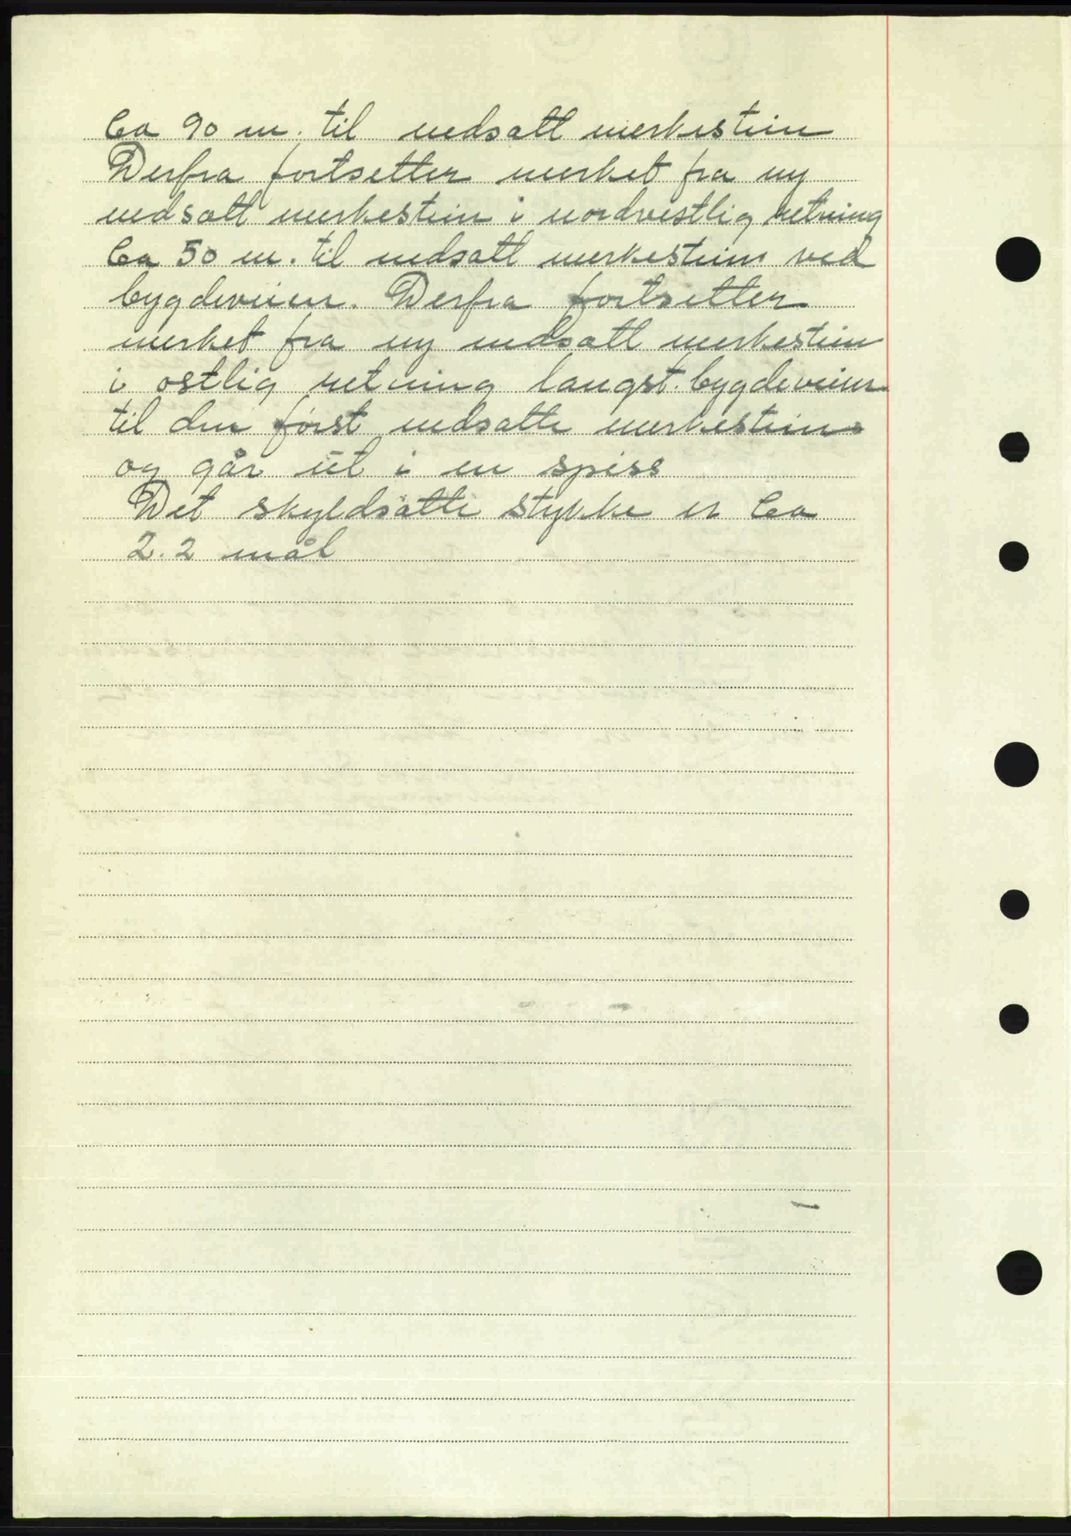 Ca 90 m. til nedsatt merkestein
Derfra fortsetter merket fra ny
nedsatt merkestein i nordvestlig retning
Ca 50 m. til nedsatt merkestein ved
bygdeveien. Derfra fortsetter
merket fra ny nedsatt merkestein
i østlig retning langst. bygdeveien
til den først nedsatte merkestein
og går ut i en spiss
Det skyldsatte stykke er Ca
2.2 mål